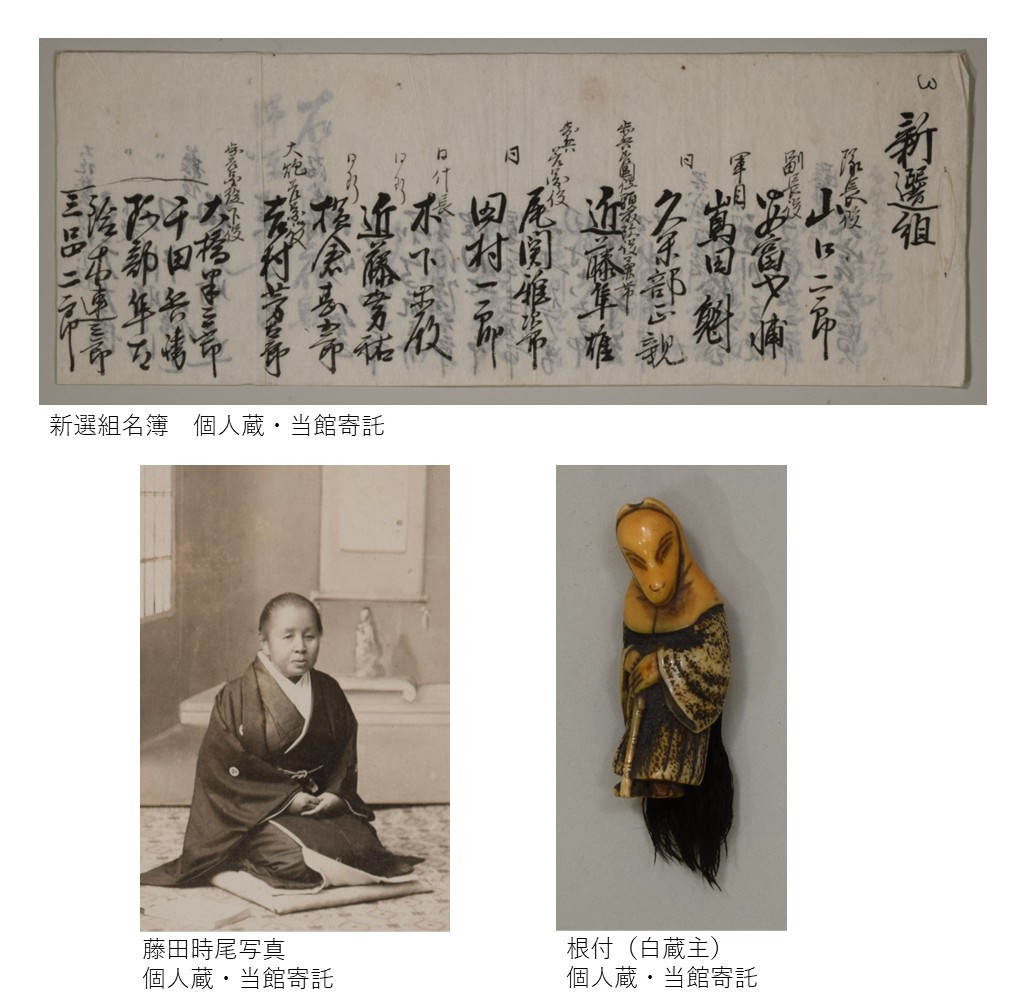 新選組
隊長役
山口二郎
副長役
安富才輔
軍目
嶌田魁
同
久米部正親
近藤隼雄
差図役
尾関雅次郎
同
田村一郎
同什長
木下
近藤芳祐
横倉甚五郎
大炮差図役
吉村芳太郎
大橋半三郎
千田兵衛
阿部隼太
鈴木連三郎
三品二郎
新選組名簿　個人蔵・当館寄託
藤田時尾写真
個人蔵・当館寄託
根付（白蔵主）
個人蔵・当館寄託